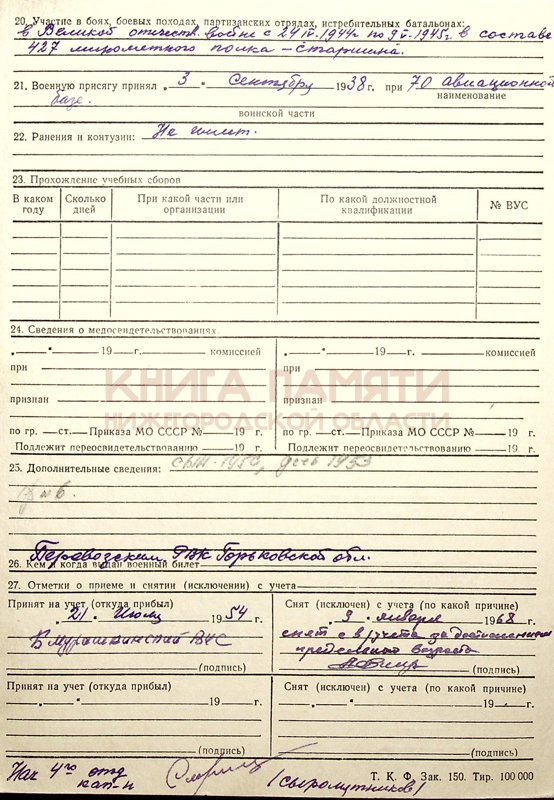 20. Участие в боях, боевых походах, партизанских отрядах, истребительных батальонах:
в Великой отечеств. войне с 24 IV-1944г по 9 V-1945г. в составе
427 минометного полка - Старшина.
21. Военную присягу принял „ 3 „ Сентября 1938 г. при 70 авиационной
базе. наименование
воинской части
22. Ранения и контузии: Не имеет.
23. Прохождение учебных сборов
В каком году Сколько дней При какой части или организации По какой должностной квалификации № ВУС
24. Сведения о медосвидетельствованиях
„ " 19 г. комиссией „ " 19 г. комиссией
при при
признан признан
КНИГА ПАМЯТИ
НИЖЕГОРОДСКОЙ ОБЛАСТИ
по гр. ст. Приказа МО СССР № 19 г. по гр. ст. Приказа МО СССР № 19 г.
Подлежит переосвидетельствованию 19 г. Подлежит переосвидетельствованию 19 г.
25. Дополнительные сведения: сын 1950, дочь 1953
Перевозским РВК Горьковской обл.
26. Кем и когда выдан военный билет
27. Отметки о приеме и снятии (исключении) с учета
Принят на учет (откуда прибыл) Снят (исключен) с учета (по какой причине)
„ 21 . Июля 1954 г. „ 9 . января 1968 г.
Б Мурашкинский ВУС
снят с в/учета за достижением
предельного возраста
(подпись) (подпись)
Принят на учет (откуда прибыл) Снят (исключен) с учета (по какой причине)
„ " 19 г. „ " 19 г.
(подпись) (подпись)
Нач 4го отд
кап-н (Сыромутников)
Т. К. Ф. Зак. 150. Тир. 100 000